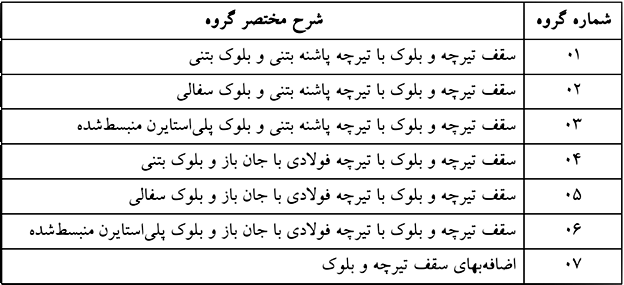 شماره گروه شرح مختصر گروه
۰۱ سقف تیرچه و بلوک با تیرچه پاشنه بتنی و بلوک بتنی
۰۲ سقف تیرچه و بلوک با تیرچه پاشنه بتنی و بلوک سفالی
۰۳ سقف تیرچه و بلوک با تیرچه پاشنه بتنی و بلوک پلی‌استایرن منبسط‌شده
۰۴ سقف تیرچه و بلوک با تیرچه فولادی با جان باز و بلوک بتنی
۰۵ سقف تیرچه و بلوک با تیرچه فولادی با جان باز و بلوک سفالی
۰۶ سقف تیرچه و بلوک با تیرچه فولادی با جان باز و بلوک پلی‌استایرن منبسط‌شده
۰۷ اضافه‌بهای سقف تیرچه و بلوک